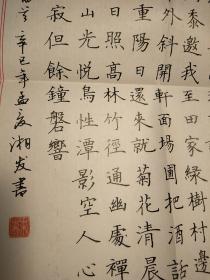 黍邀我至田家緑樹村邊
外斜開軒面場圃把酒話
重陽日還來就菊花清晨
日照高林竹徑通幽處禪
山光悦鳥性潭影空人心
寂但餘鐘磬響
辛巳年孟夏湘发書